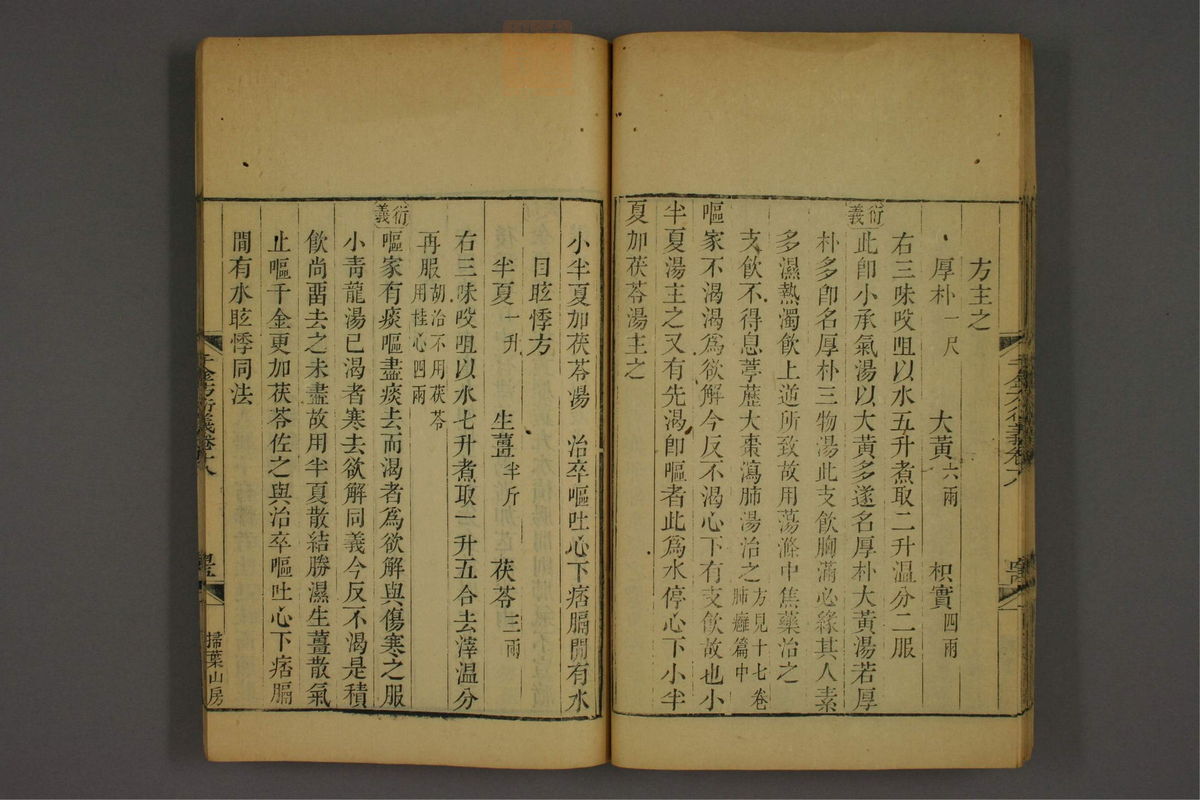 方主之
厚朴一尺 大黃六兩 枳實四兩
右三味㕮咀以水五升煮取二升温分二服
衍義
此卽小承氣湯以大黃多遂名厚朴大黃湯若厚
朴多卽名厚朴三物湯此支飲胸滿必緣其人素
多濕熱濁飲上逆所致故用蕩滌中焦藥治之
支飲不得息葶藶大棗瀉肺湯治之方見十七卷肺癰篇中
嘔家不渴渴爲欲解今反不渴心下有支飲故也小
半夏湯主之又有先渴卽嘔者此爲水停心下小半
夏加茯苓湯主之
小半夏加茯苓湯 治卒嘔吐心下痞膈間有水
目眩悸方
半夏一升 生薑半斤 茯苓三兩
右三味㕮咀以水七升煮取一升五合去滓温分
再服胡洽不用茯苓用桂心四兩
衍義
嘔家有痰嘔盡痰去而渴者爲欲解與傷寒之服
小靑龍湯已渴者寒去欲解同義今反不渴是積
飲尚畱去之未盡故用半夏散結勝濕生薑散氣
止嘔千金更加茯苓佐之與治卒嘔吐心下痞膈
間有水眩悸同法
千金方衍義卷十八
掃葉山房